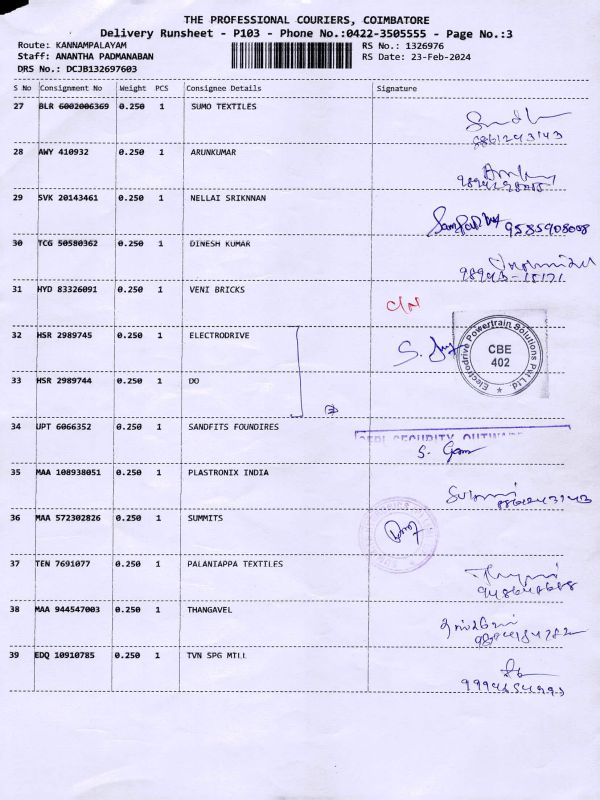 THE PROFESSIONAL COURIERS, COIMBATORE
Delivery Runsheet - P103 - Phone No.:0422-3505555 - Page No.:3
Route: KANNAMPALAYAM RS No.: 1326976
Staff: ANANTHA PADMANABAN RS Date: 23-Feb-2024
DRS No.: DCJB132697603
S No Consignment No Weight PCS Consignee Details Signature
27 BLR 6002006369 0.250 1 SUMO TEXTILES
28 AWY 410932 0.250 1 ARUNKUMAR
29 SVK 20143461 0.250 1 NELLAI SRIKNNAN
9585908008
30 TCG 50580362 0.250 1 DINESH KUMAR
31 HYD 83326091 0.250 1 VENI BRICKS
32 HSR 2989745 0.250 1 ELECTRODRIVE
Electrodrive Powertrain Solutions Pvt Ltd.
CBE
402
33 HSR 2989744 0.250 1 DO
34 UPT 6066352 0.250 1 SANDFITS FOUNDIRES
SECURITY OUTWARD
35 MAA 108938051 0.250 1 PLASTRONIX INDIA
36 MAA 572302826 0.250 1 SUMMITS
37 TEN 7691077 0.250 1 PALANIAPPA TEXTILES
38 MAA 944547003 0.250 1 THANGAVEL
39 EDQ 10910785 0.250 1 TVN SPG MTLL